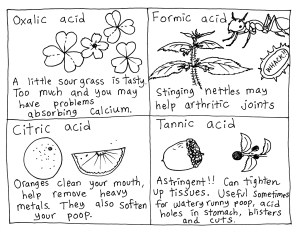 Oxalic acid
A little sour grass is Tasty.
Too much and you may
have problems
absorbing Calcium.
Formic acid
WHACK!
Stinging nettles may
help arthritic joints
Citric acid
Oranges clean your mouth,
help remove heavy
metals. They also soften
your poop.
Tannic acid
Astringent!! Can tighten
up tissues. Useful sometimes
for watery runny poop, acid
holes in stomach, blisters
and cuts.